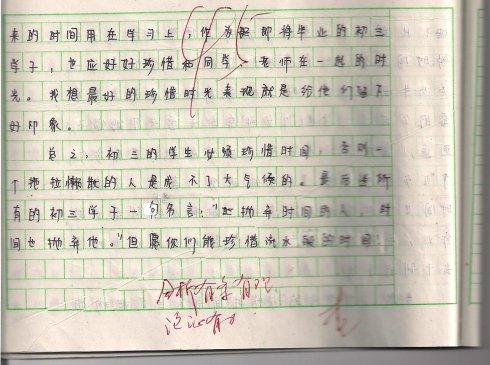 来的时间用在学习上。作为即将毕业的初三
学子,也应好好珍惜和同学、老师在一起的时
光。我想最好的珍惜时光表现就是给他们留下
好印象。
总之,初三的学生必须珍惜时间,否则一
个拖拉懒散的人是成不了大气候的。最后送所
有的初三学子一句名言:"抛弃时间的人,时
间也抛弃他。"但愿你们能珍惜流水般的时间
45
分析有条有理
论证有力